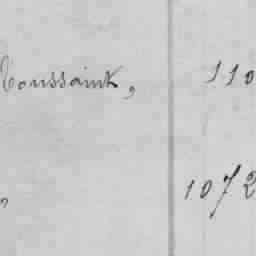 Toussaint, 110
1072